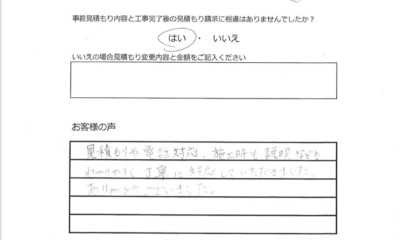 事前見積もり内容と工事完了後の見積もり請求に相違はありませんでしたか?
はい・いいえ
いいえの場合見積もり変更内容と金額をご記入ください
お客様の声
見積もりや電話対応、施工時も説明なども
わかりやすく丁寧に対応していただきました。
ありがとうございました。